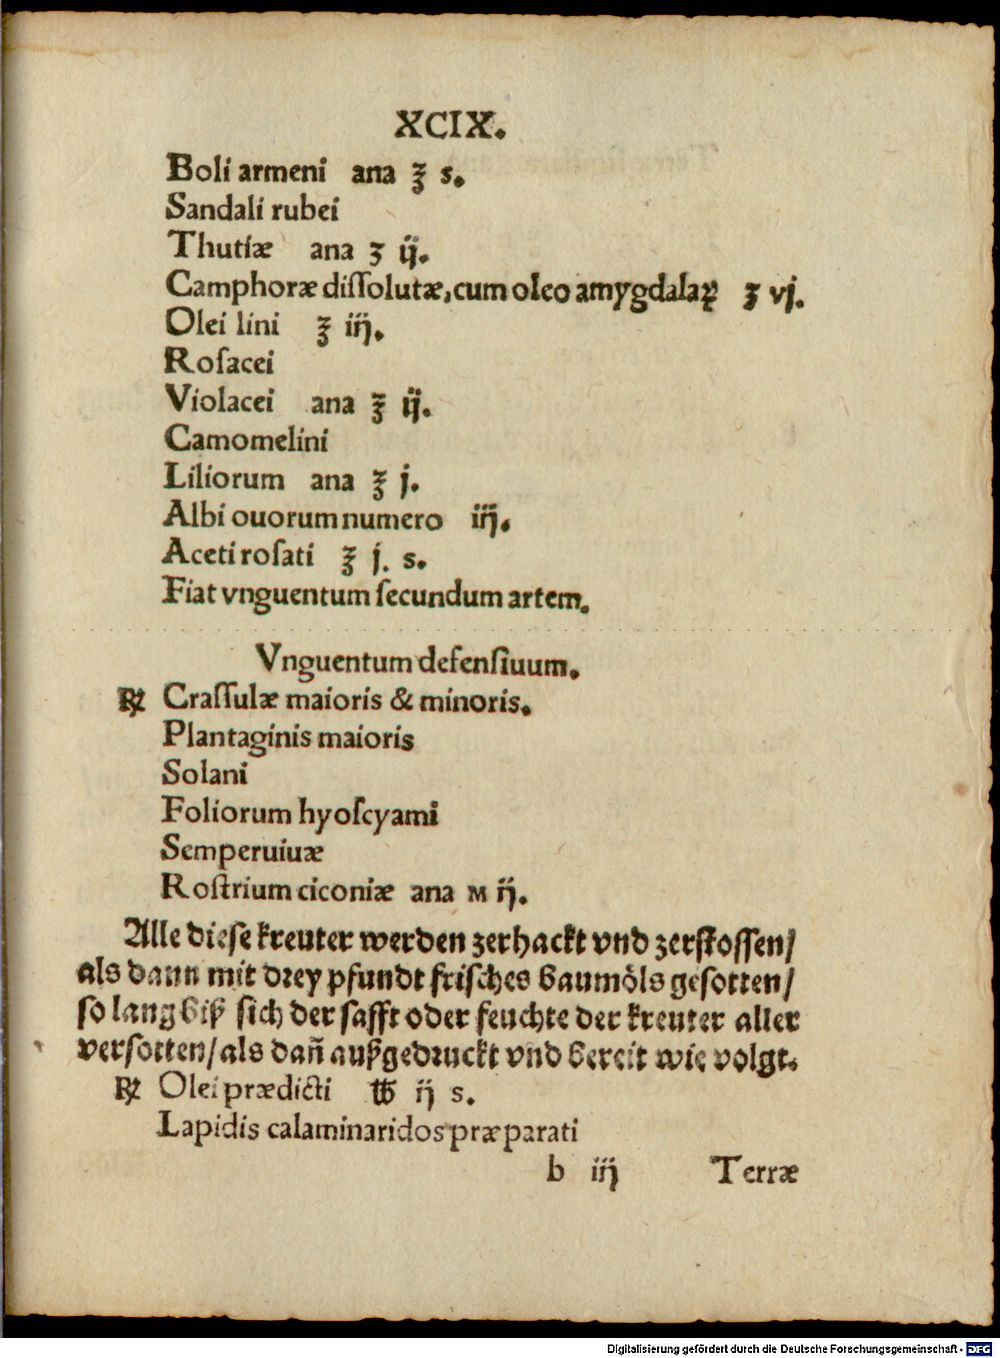 XCIX.
Boli armeni ana ℥ s.
Sandali rubei
Thutiæ ana ʒ ij.
Camphoræ diſſolutæ, cum oleo amygdalaꝝ ʒ vj.
Olei lini ℥ iij.
Roſacei
Violacei ana ℥ ij.
Camomelini
Liliorum ana ℥ j.
Albi ouorum numero iij.
Aceti roſati ℥ j. s.
Fiat vnguentum ſecundum artem.
Vnguentum defenſiuum.
℞ Craſſulæ maioris & minoris.
Plantaginis maioris
Solani
Foliorum hyoſcyami
Semperuiuæ
Roſtrium ciconiæ ana M ij.
Alle dieſe kreuter werden zerhackt vnd zerſtoſſen/
als dann mit drey pfundt friſches baumöls geſotten/
ſo lang biß ſich der ſafft oder feuchte der kreuter aller
verſotten/ als dañ außgedruckt vnd bereit wie volgt.
℞ Olei prædicti ℔ ij s.
Lapidis calaminaridos præparati
b iij Terræ
Digitalisierung gefördert durch die Deutsche Forschungsgemeinschaft - DFG